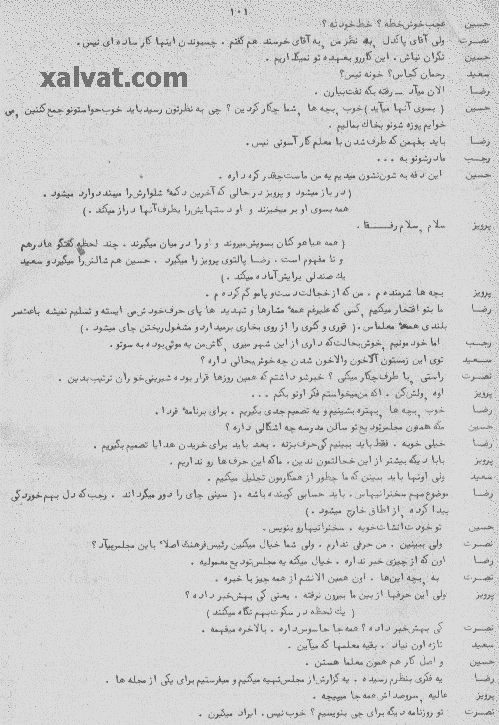 ۱۰۱
حسین عجب خوش خطه ؟ خط خودته ؟
نصرت ولی آقای پاکدل به نظر من به آقای خرسند هم گفتم . چسبوندن اینها کار ساده ای نیس .
حسین نگران نباش . این کاررو بعهده تو نمیگذاریم .
سعید رحمان کجاس؟ خونه نیس؟
رضا الان میآد . رفته بگه نفت بیارن .
حسین ( بسوی آنها میآید ) خوب ، بچه ها ، شما چکار کردین ؟ چی به نظرتون رسید باید خوب حواستونو جمع کنین ، می
خوایم پوزه شونو بخاک بمالیم .
رضا باید بفهمن که طرف شدن با معلم کار آسونی نیس .
رجب مادرشونو به ...
حسین این دفه به شون نشون میدیم یه من ماست چقدر کره داره .
( در باز میشود و پرویز در حالی که آخرین دکمهٔ شلوارش را میبندد وارد میشود .
همه بسوی او بر میخیزند و او دستهایش را بطرف آنها دراز میکند . )
پرویز سلام ، سلام رفـقـا .
( همه هیاهو کنان بسویش میروند و او را در میان میگیرند . چند لحظه گفتگوها درهم
و نا مفهوم است . رضا پالتوی پرویز را میگیرد . حسین هم شالش را میگیرد و سعید
یک صندلی برایش آماده میکند . )
پرویز بچه ها شرمنده م . من که از خجالت دست و پامو گم کرده م .
رضا ما بتو افتخار میکنیم . کسی که علیرغم همهٔ فشارها و تهدید ها پای حرف خودش می ایسته و تسلیم نمیشه باعث سر
بلندی همهٔ معلماس . ( قوری و کتری را از روی بخاری برمیدارد و مشغول ریختن چای میشود . )
رجب اما خودمونیم ، خوش بحالت که داری از این شهر میری . کاش من به موئی بوده به سوتو .
سعید توی این زمستون آلاخون والاخون شدن چه خوش بحالی داره ؟
نصرت راستی ، با طرف چکار میکنی ؟ خبر شو داشتم که همین روزها قرار بوده شیرینی خوران ترتیب بدین .
پرویز اوه ، ولش کن . اگه من میخواستم فکر اونو بکنم ...
رضا خوب ، بچه ها ، بهتره بشینیم و یه تصمیم جدی بگیریم . برای برنامهٔ فردا .
حسین مگه همون مجلس تودیع تو سالن مدرسه چه اشکالی داره ؟
رضا خیلی خوبه . فقط باید ببینیم کی حرف بزنه . بعد باید برای خریدن هدایا تصمیم بگیریم .
پرویز بابا دیگه بیشتر از این خجالتمون ندین . ما که این حرف ها رو نداریم .
سعید ولی اونها باید ببینن که ما چطور از همکارمون تجلیل میکنیم .
رضا موضوع مهم سخنرانیهاس . باید حسابی کوبنده باشه . ( سینی چای را دور میگرداند . رجب که دل بهم خوردگی
پیدا کرده ، از اطاق خارج میشود . )
حسین تو خودت انشات خوبه . سخنرانیها رو بنویس .
نصرت ولی ببینین . من حرفی ندارم . ولی شما خیال میکنین رئیس فرهنگ اصلا" باین مجلس میآد ؟
رضا اون که از چیزی خبر نداره . خیال میکنه یه مجلس تودیع معمولیه .
نصرت به ، بچه این ها . اون همین الانشم از همه چیز با خبره .
پرویز ولی این حرفها از بین ما بیرون نرفته . یعنی کی بهش خبر داده ؟
( یک لحظه در سکوت بهم نگاه میکنند )
نصرت کی بهش خبر داده ؟ همه جا جاسوس داره . بالاخره میفهمه .
سعید تازه اون نیاد . بقیه معلمها که میآین .
حسین و اصل کار هم همون معلما هستن .
رضا یه فکری بنظرم رسیده . یه گزارش از مجلس تهیه میکنیم و میفرستیم برای یکی از مجله ها .
پرویز عالیه ، سروصداش همه جا میپیچه .
نصرت تو روزنامه دیگه برای چی بنویسیم ؟ خوب نیس . ایراد میگیرن .
xalvat.com